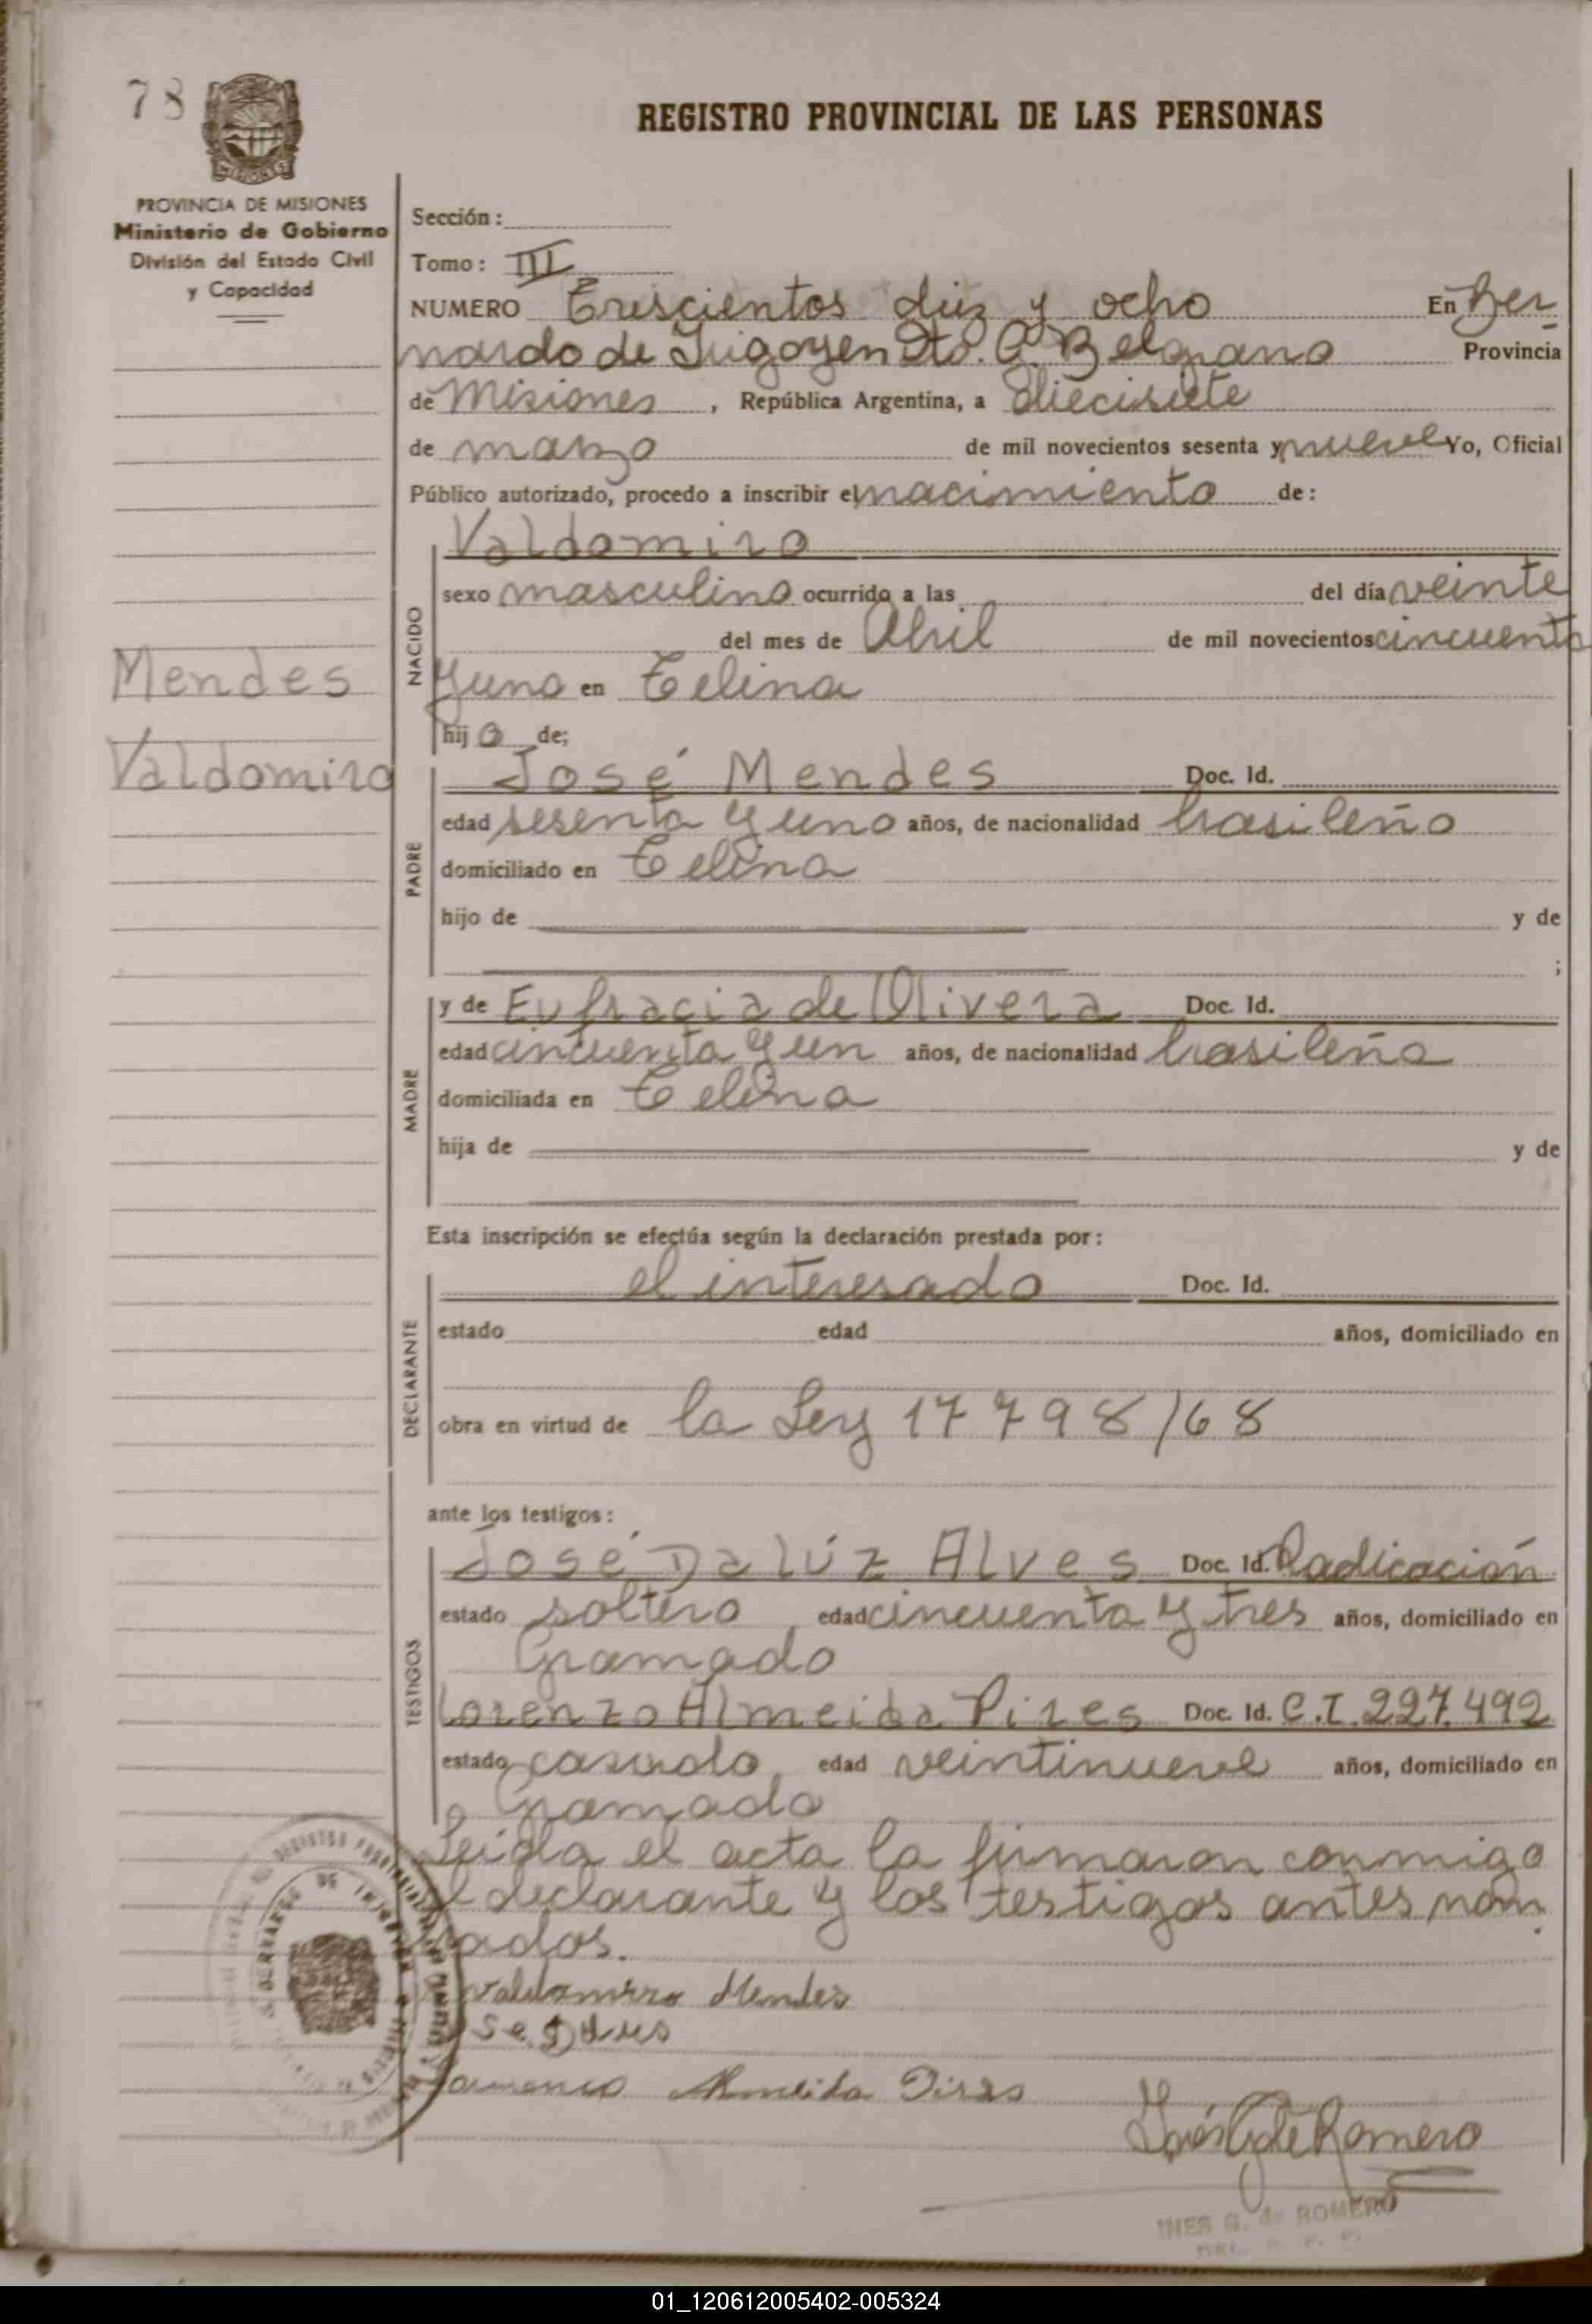 78
REGISTRO PROVINCIAL DE LAS PERSONAS
MISIONES
PROVINCIA DE MISIONES
Ministerio de Gobierno
División del Estado Civil
y Capacidad
Mendes
Valdomiro
Sección:
Tomo: III
NUMERO Trescientos diez y ocho En Ber
nardo de Irigoyen Dto. G. Belgrano Provincia
de Misiones, República Argentina, a diecisiete
de marzo de mil novecientos sesenta y nueve Yo, Oficial
Público autorizado, procedo a inscribir el nacimiento de:
Valdomiro
NACIDO
sexo masculino ocurrido a las del día veinte
del mes de Abril de mil novecientos cincuenta
y uno en Celina
hijo de;
PADRE
José Mendes Doc. Id.
edad sesenta y uno años, de nacionalidad brasileño
domiciliado en Celina
hijo de y de
;
MADRE
y de Eufracia de Olivera Doc. Id.
edad cincuenta y un años, de nacionalidad brasileña
domiciliada en Celina
hija de y de
Esta inscripción se efectúa según la declaración prestada por:
DECLARANTE
el interesado Doc. Id.
estado edad años, domiciliado en
obra en virtud de la Ley 17798/68
ante los testigos:
TESTIGOS
José Da Lúz Alves Doc. Id. Radicación
estado soltero edad cincuenta y tres años, domiciliado en
Gramado
Lorenzo Almeida Pires Doc. Id. C.I. 227.492
estado casado edad veintinueve años, domiciliado en
Gramado
Leida el acta la firmaron conmigo
el declarante y los testigos antes nom
rados.
Valdomiro Mendes
Almeida Pires
Inés G de Romero
INES G. de ROMERO
01_120612005402-005324